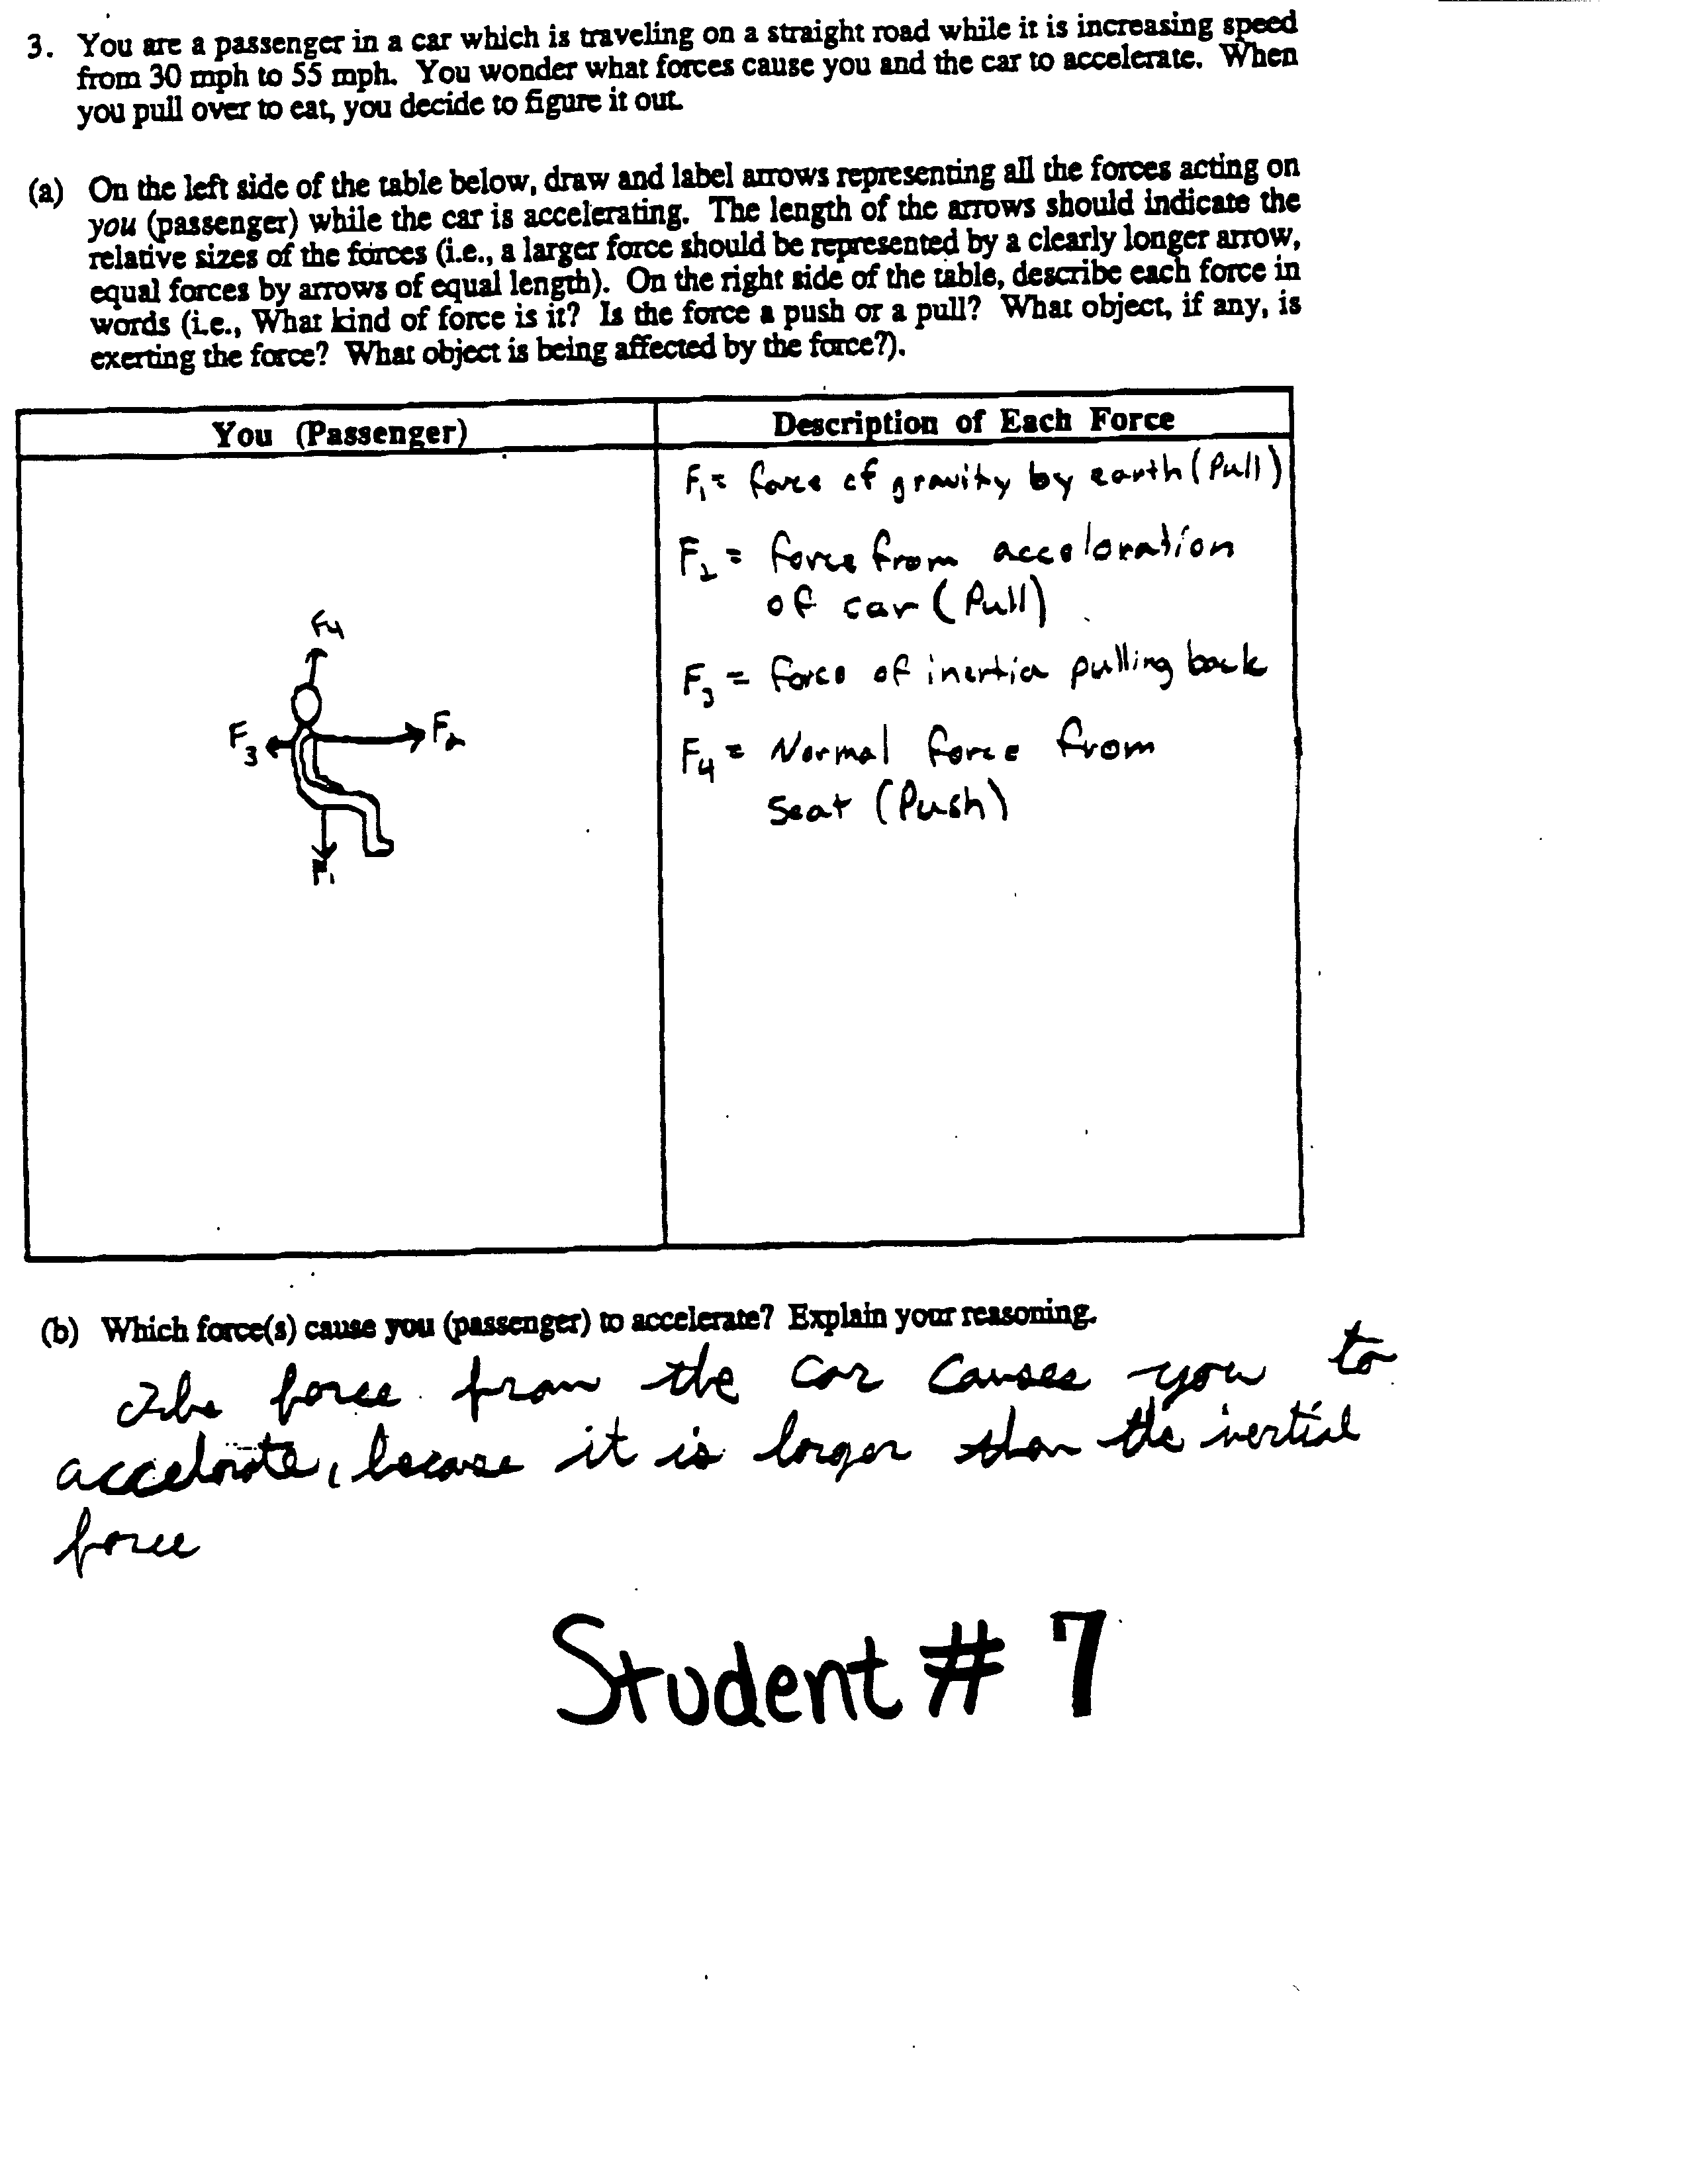 3. You are a passenger in a car which is traveling on a straight road while it is increasing speed
from 30 mph to 55 mph. You wonder what forces cause you and the car to accelerate. When
you pull over to eat, you decide to figure it out.
(a) On the left side of the table below, draw and label arrows representing all the forces acting on
you (passenger) while the car is accelerating. The length of the arrows should indicate the
relative sizes of the forces (i.e., a larger force should be represented by a clearly longer arrow,
equal forces by arrows of equal length). On the right side of the table, describe each force in
words (i.e., What kind of force is it? Is the force a push or a pull? What object, if any, is
exerting the force? What object is being affected by the force?).
You (Passenger)
F4
F3
F2
F1
Description of Each Force
F1 = force of gravity by earth (Pull)
F2 = force from acceloration
of car (Pull)
F3 = force of inertia pulling back
F4 = Normal force from
Seat (Push)
(b) Which force(s) cause you (passenger) to accelerate? Explain your reasoning.
The force from the car causes you to
accelorate, because it is larger than the inertial
force
Student # 7